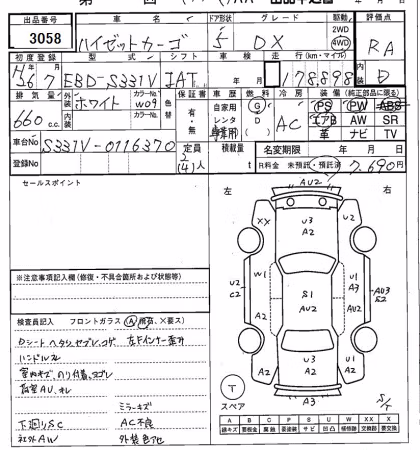 出品番号 車名 ドア形状 グレード 駆動 評価点
3058 ハイゼットカーゴ 5 DX 2WD 4WD RA
初度登録 型式 シフト 車検 走行(km・マイル) 内装
H26年7月 EBD-S331V IAT 年 月 178,898 D
排気量 外装 カラーNo. 色替 保証書 車歴 燃料 冷房 装備(純正部品に限る)
660c.c. ホワイト W09 有・無 自家用 G AC PS PW ABS
内装 カラーNo. レンタ D エアB AW SR
革 ナビ TV
車台No S331V-0116370 定員 積載量 名変期限 年 月 日
登録No 2(4)人 t R料金 未預託・預託済 7,690円
セールスポイント
左 右
AU2
XX U3 A2 U2
A2 A2
U2 C2 W1 S1 AU2 U1 A3 AU3 S2
A2 U3 A2 U1 A2
AU2
A3
T スペア
※注意事項記入欄(修復・不具合箇所および状態等)
検査員記入 フロントガラス(A飛石、×要ス)
Dシート ヘタリ、ヤブレ、コゲ 左Fインナー歪み
ハンドルスレ
室内キズ、のり付着、ヨゴレ
荷室AU、オレ
ミラーキズ
下廻りSC AC不良
社外AW 外装色アセ
A B C P S U W X XX